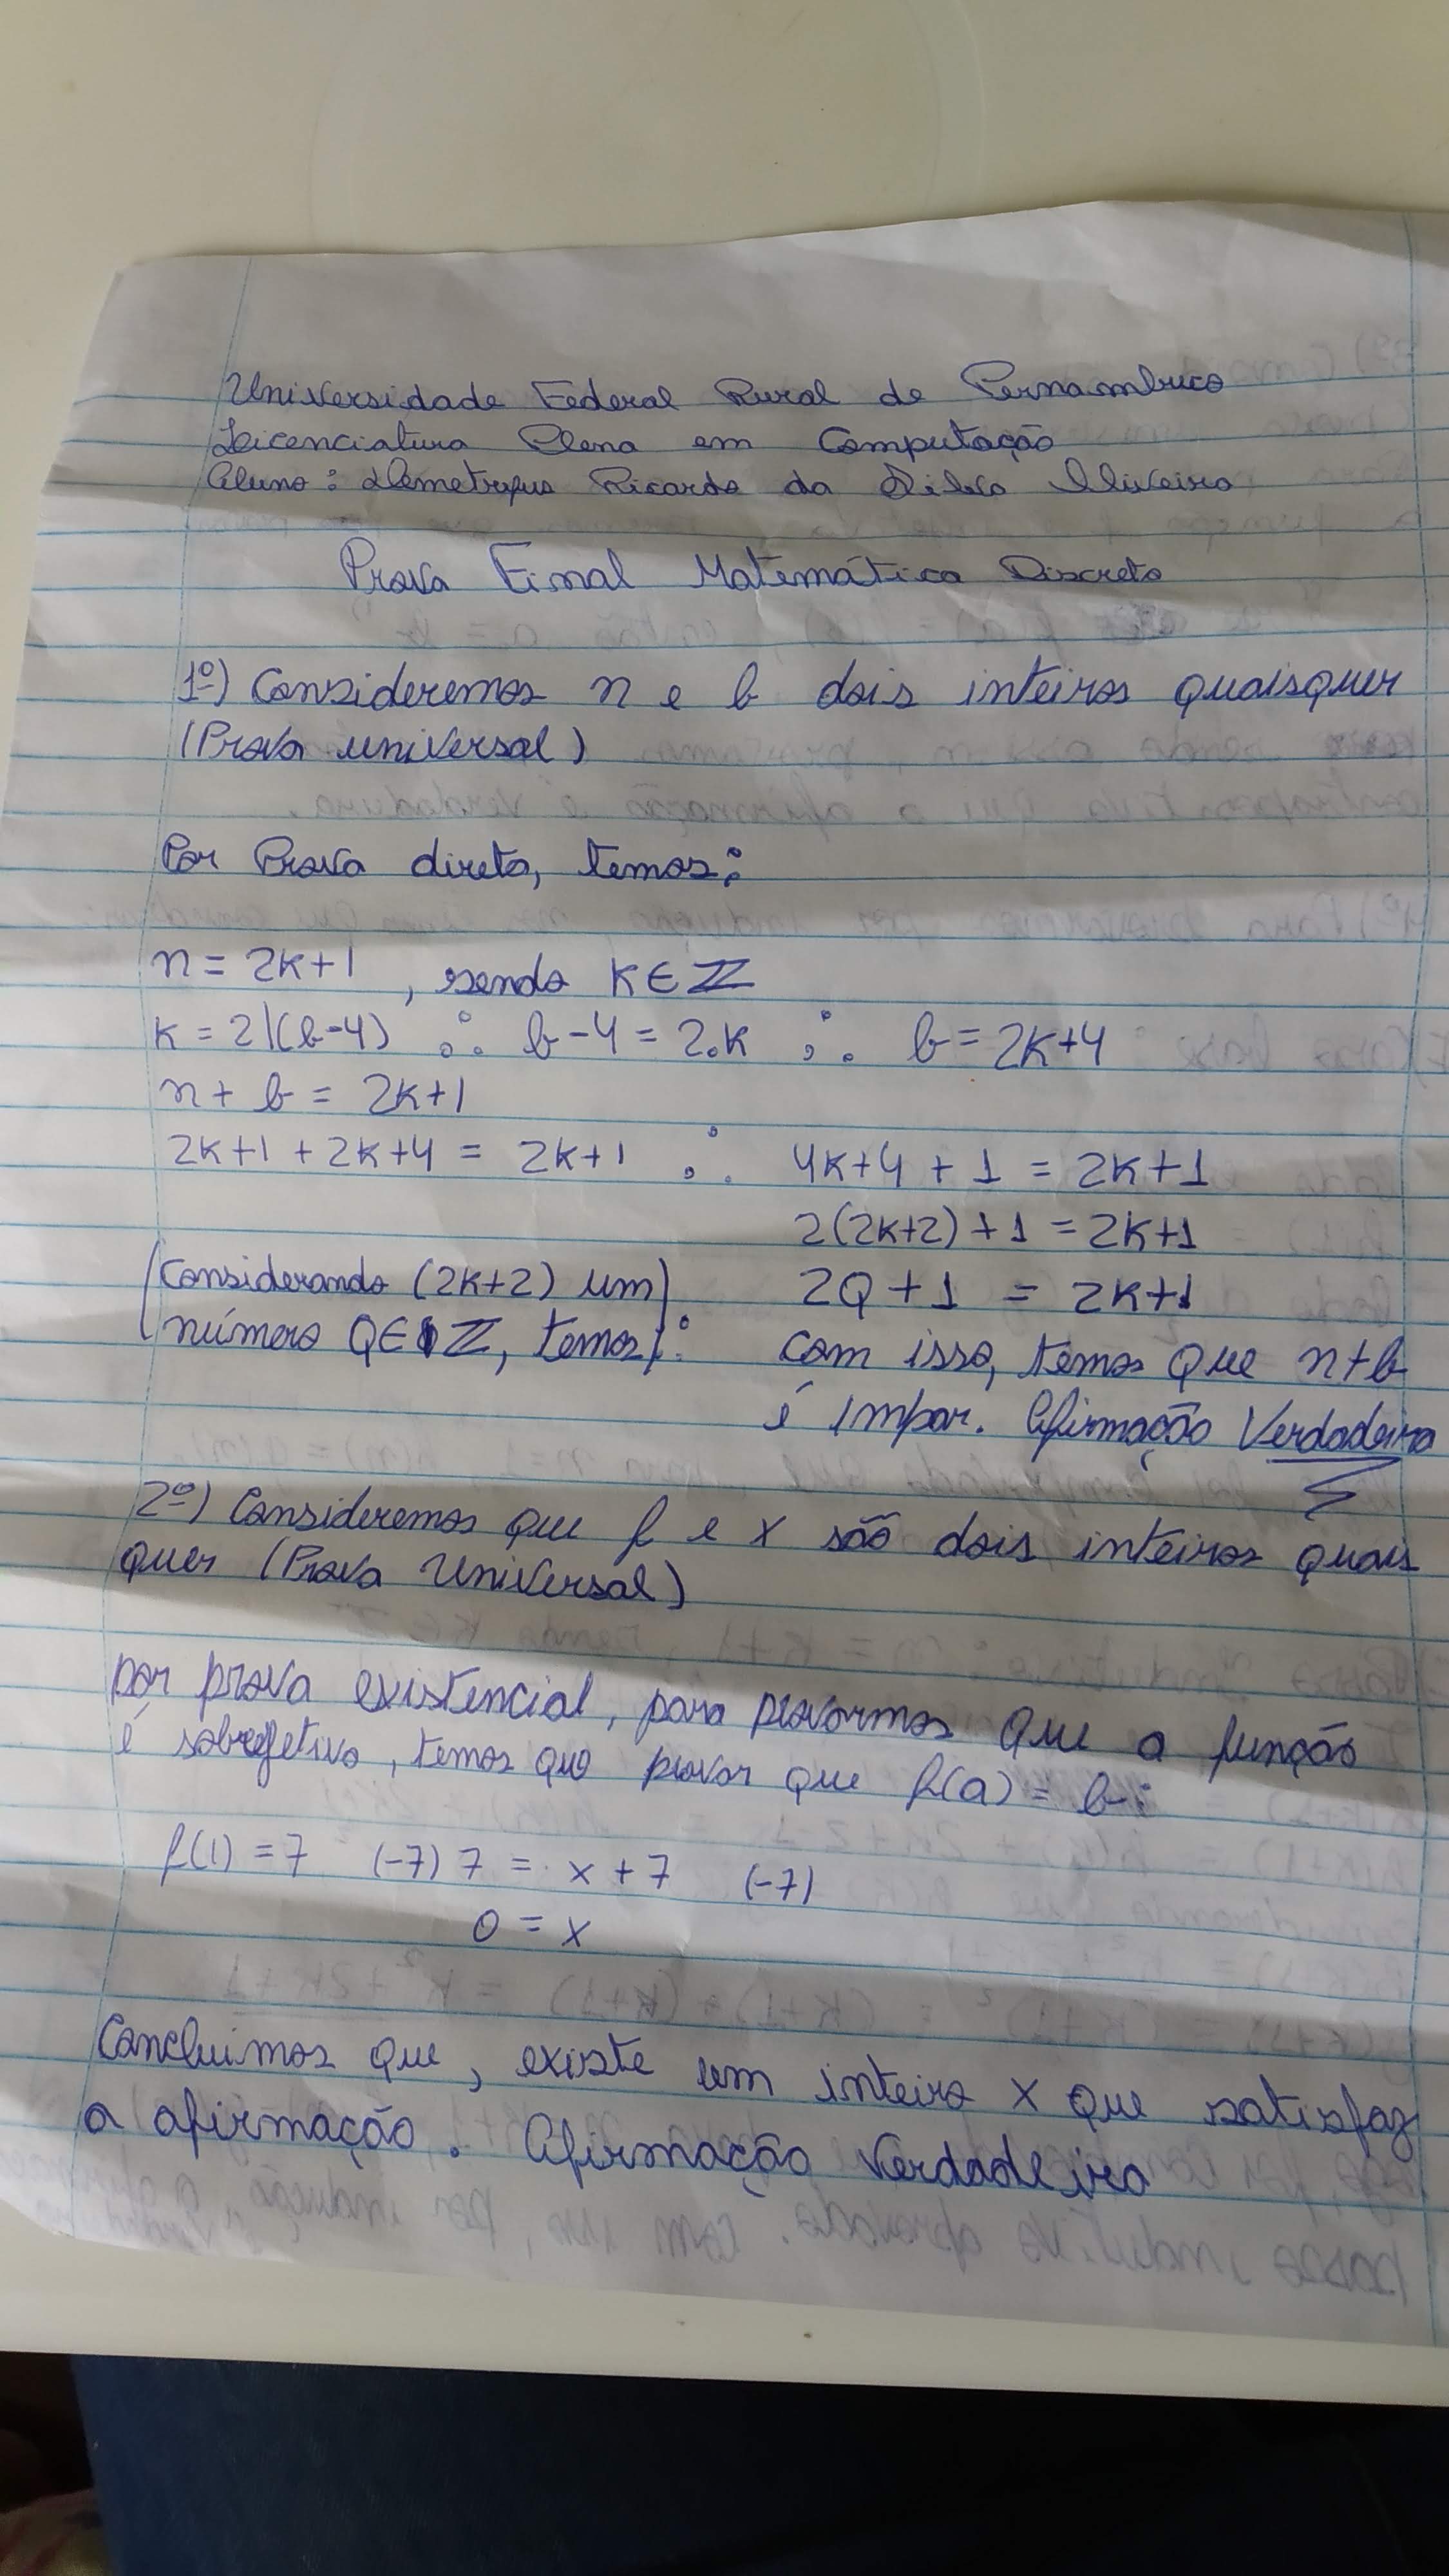 Universidade Federal Rural de Pernambuco
Licenciatura Plena em Computação
Aluno: Demetryus Ricardo da Silva Oliveira
Prova Final Matemática Discreta
1º) Consideremos n e b dois inteiros quaisquer
(Prova universal)
Por Prova direta, temos:
n = 2k+1 , sendo K∈ℤ
K = 2|(b-4) ∴ b-4 = 2.K ∴ b = 2K+4
n + b = 2K+1
2K+1 + 2K+4 = 2K+1 ∴ 4K+4 + 1 = 2K+1
2(2K+2) + 1 = 2K+1
(Considerando (2K+2) um 2Q + 1 = 2K+1
número Q∈ℤ, temos): Com isso, temos que n+b
é Impar. Afirmação Verdadeira
2º) Consideremos que f e x são dois inteiros quais
quer (Prova Universal)
por prova existencial, para provarmos que a função
é sobrejetiva, temos que provar que f(a) = b:
f(1) = 7 (-7) 7 = x + 7 (-7)
0 = x
Concluimos que, existe um inteiro x que satisfaz
a afirmação. Afirmação Verdadeira